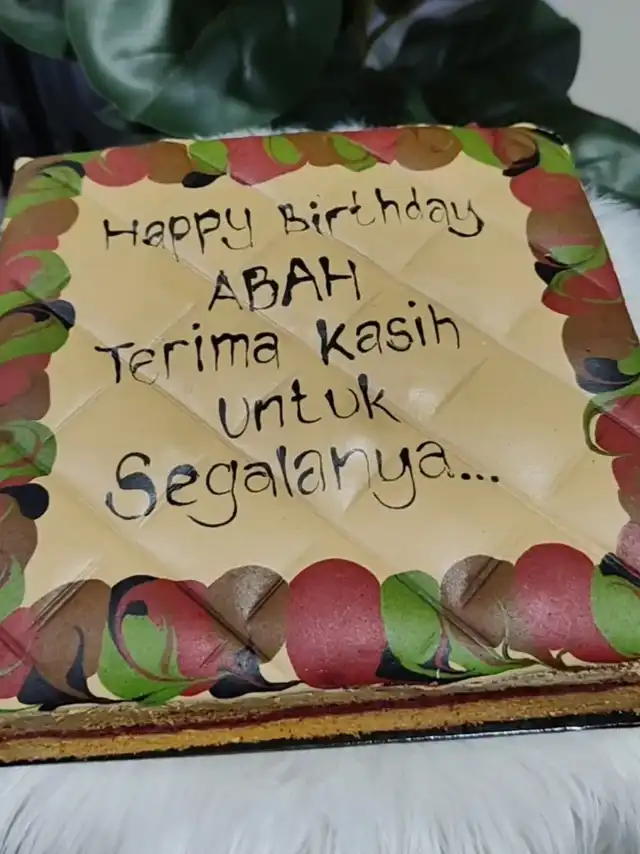 Happy Birthday
ABAH
Terima Kasih
Untuk
Segalanya...